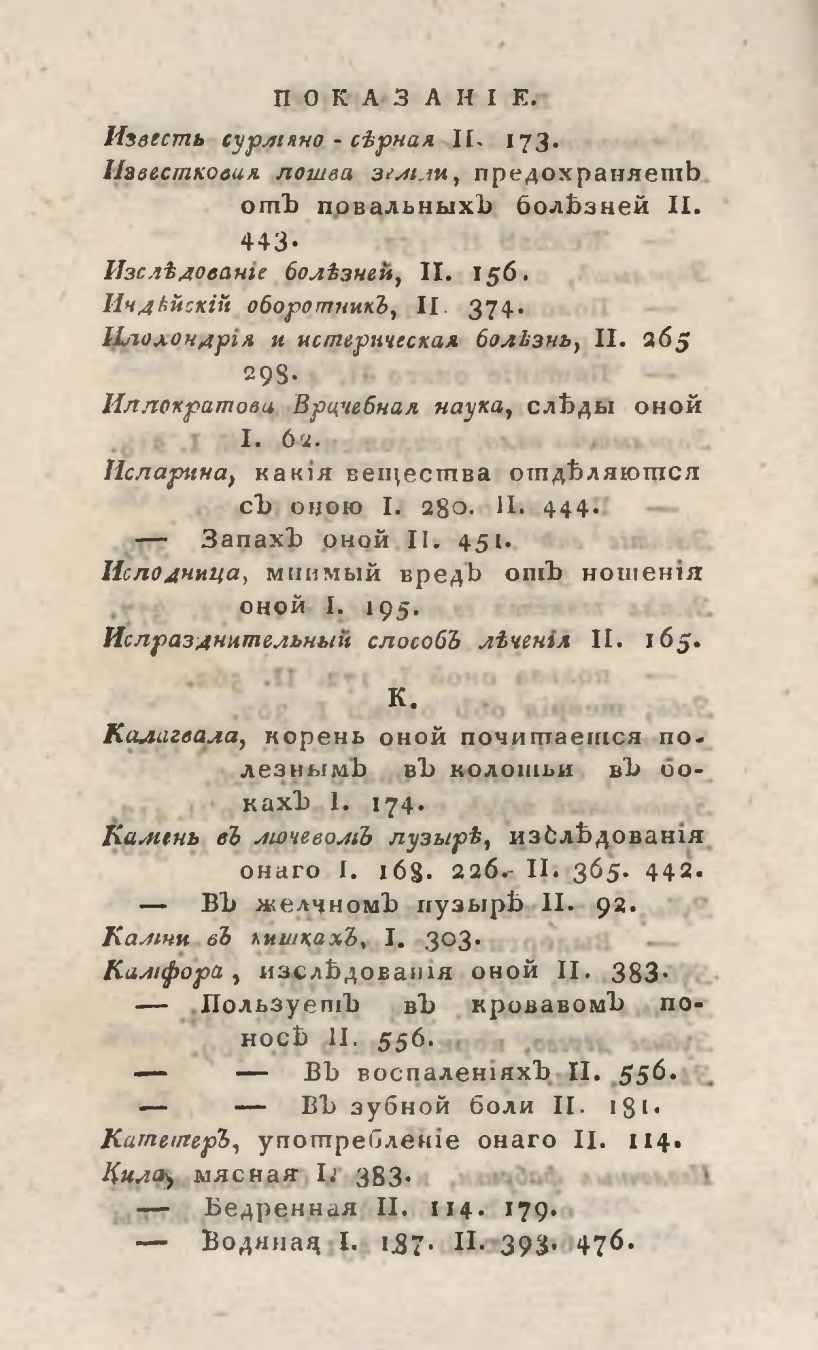 ПОКАЗАНІЕ.
Известь сурмяно - сѣрная II. 173.
Известковая почва земли, предохраняетъ
отъ повальныхъ болѣзней II.
443.
Изслѣдованіе болѣзней, II. 156.
Индѣйскій оборотникъ, II. 374.
Ипохондрія и истерическая болѣзнь, II. 265
298.
Иппократова Врачебная наука, слѣды оной
I. 62.
Испарина, какія вещества отдѣляются
съ оною I. 280. II. 444.
— Запахъ оной II. 451.
Исподница, мнимый вредъ отъ ношенія
оной I. 195.
Испразднительный способъ лѣченія II. 165.
К.
Калагвала, корень оной почитается по-
лезнымъ въ колотьи въ бо-
кахъ I. 174.
Камень въ мочевомъ пузырѣ, изслѣдованія
онаго I. 168. 226. II. 365. 442.
— Въ желчномъ пузырѣ II. 92.
Камни въ кишкахъ, I. 303.
Камфора, изслѣдованія оной II. 383.
— Пользуетъ въ кровавомъ по-
носѣ II. 556.
— — Въ воспаленіяхъ II. 556.
— — Въ зубной боли II. 181.
Катетеръ, употребленіе онаго II. 114.
Кила, мясная I. 383.
— Бедренная II. 114. 179.
— Водяная I. 187. II. 393. 476.